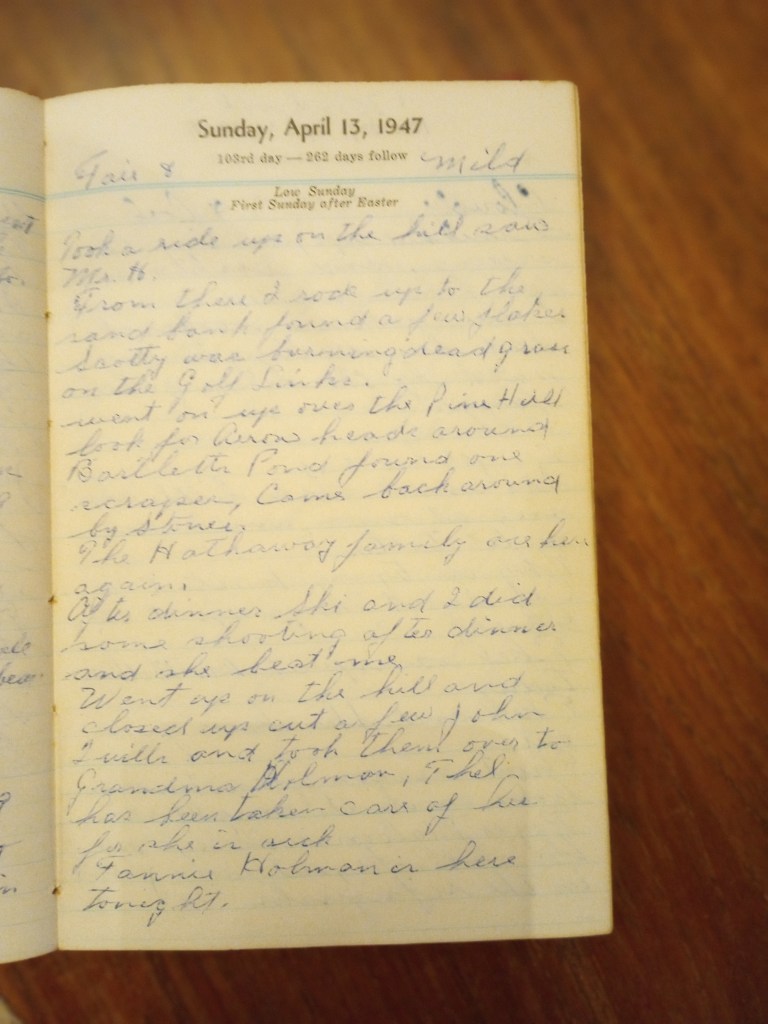 Sunday, April 13, 1947
103rd day — 262 days follow
Fair & Mild
Low Sunday
First Sunday after Easter
Took a ride up on the hill saw
Mr. H.
From there I rode up to the
sand bank found a few flakes
Scotty was burning dead grass
on the Golf Links.
went on up over the Pine Hill
look for Arrow heads around
Bartletts Pond found one
scraper, Came back around
by Stones.
The Hathaway family are here
again.
After dinner Ski and I did
some shooting after dinner
and she beat me
Went up on the hill and
closed up cut a few John
Quills and took them over to
Grandma Holman, Thel
has been taken care of her
for she is sick
Fannie Holman is here
tonight.